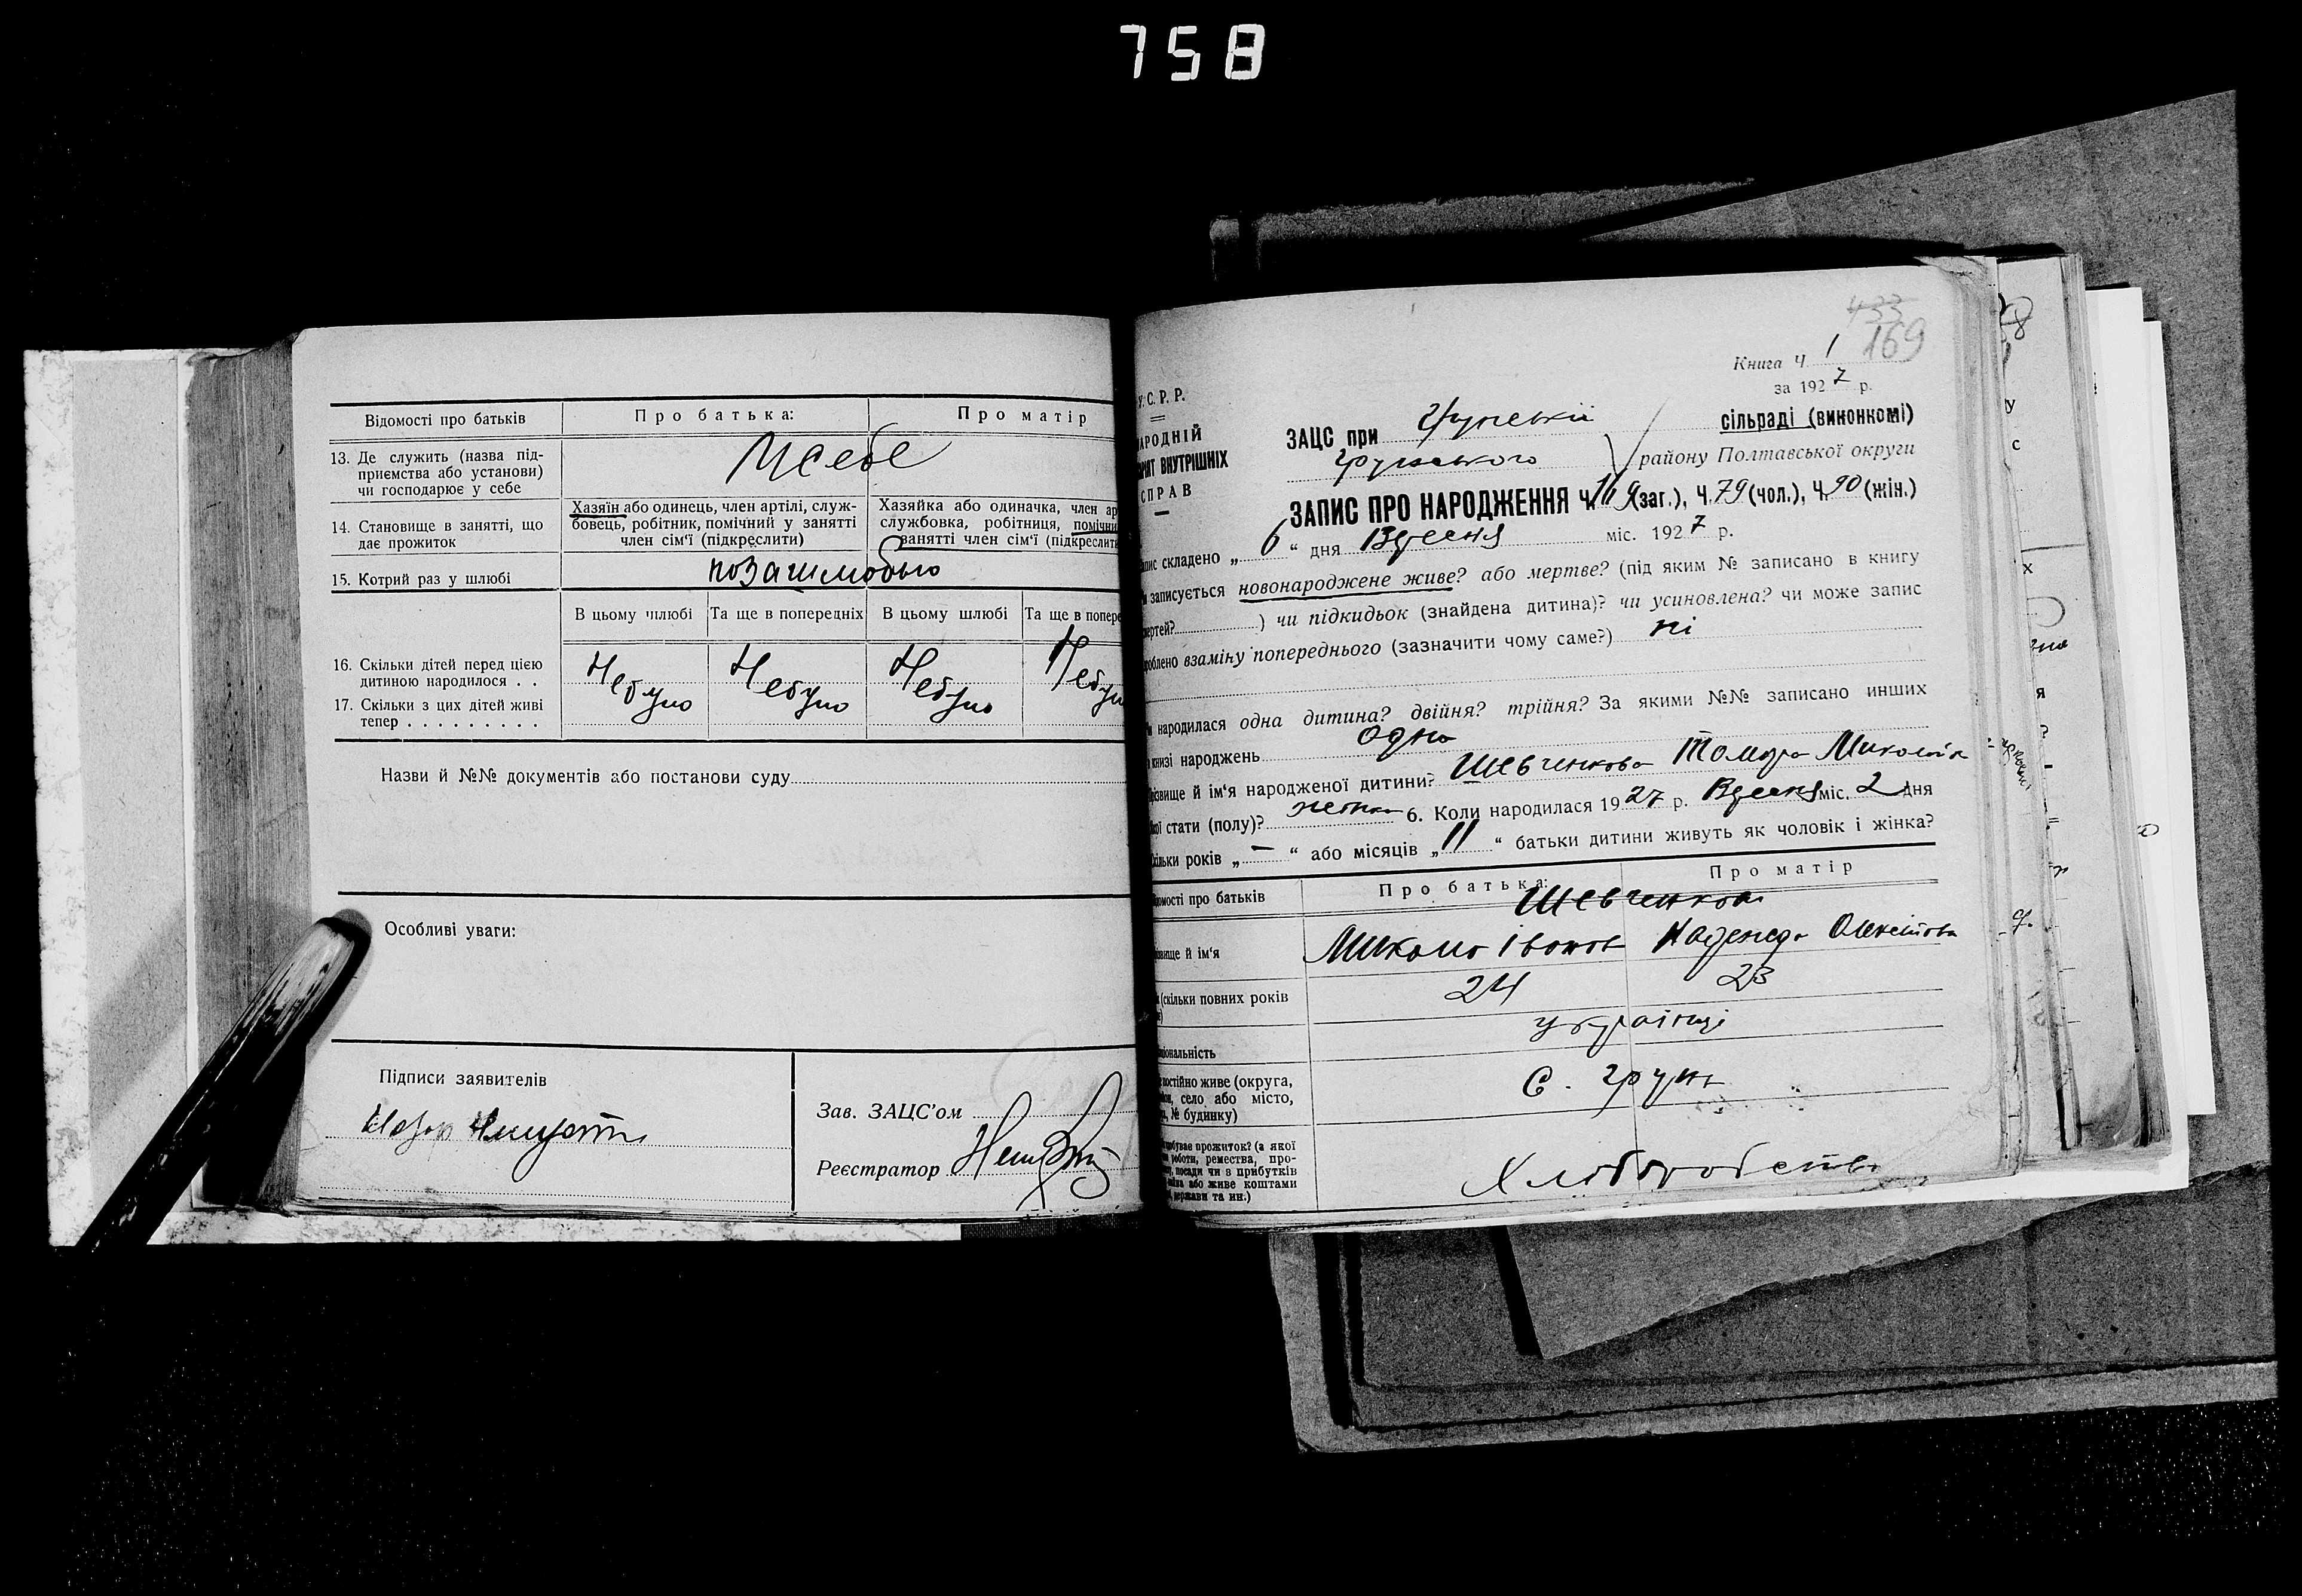 758
Відомості про батьків
Про батька:
Про матір
13. Де служить (назва під-
приємства або установи)
чи господарює у себе
У себе
14. Становище в занятті, що
дає прожиток
Хазяїн або одинець, член артілі, служ-
бовець, робітник, помічний у занятті
член сім'ї (підкреслити)
Хазяйка або одиначка, член ар
службовка, робітниця, помічни
занятті член сім'ї (підкреслити
15. Котрий раз у шлюбі
позашлюбно
В цьому шлюбі
Та ще в попередніх
В цьому шлюбі
Та ще в попере
16. Скільки дітей перед цією
дитиною народилося . .
17. Скільки з цих дітей живі
тепер . . . . . . . . .
Небуло
Небуло
Небуло
Небуло
Назви й №№ документів або постанови суду
Особливі уваги:
Підписи заявителів
Зав. ЗАЦС'ом
Реєстратор
433
169
Книга Ч. 1
за 1927 р.
У. С. Р. Р.
АРОДНІЙ
РІЯТ ВНУТРІШНІХ
СПРАВ
ЗАЦС при Грунській сільраді (виконкомі)
Грунського району Полтавської округи
ЗАПИС ПРО НАРОДЖЕННЯ Ч. 169 (заг.), Ч. 79 (чол.), Ч. 90 (жін.)
пис складено „ 6 “ дня Вересня міс. 1927 р.
и записується новонароджене живе? або мертве? (під яким № записано в книгу
мертей? ) чи підкидьок (знайдена дитина)? чи усиновлена? чи може запис
роблено взаміну попереднього (зазначити чому саме?) ні
и народилася одна дитина? двійня? трійня? За якими №№ записано инших
книзі народжень одна
різвище й ім'я народженої дитини? Шевченкова Тамара Миколаївн
кої стати (полу)? жіноч 6. Коли народилася 1927 р. Вересня міс. 2 дня
кільки років „ — “ або місяців „ 11 “ батьки дитини живуть як чоловік і жінка?
ідомості про батьків
Про батька:
Про матір
Шевченкови
ізвище й ім'я
Микола Іванов
Надежда Олексіївна
(скільки повних років
24
23
ціональність
українці
постійно живе (округа,
он, село або місто,
№ будинку)
С. Грунь
добуває прожиток? (з якої
роботи, ремества, про-
посади чи з прибутків
або живе коштами
держави та ин.)
Хлоборобство